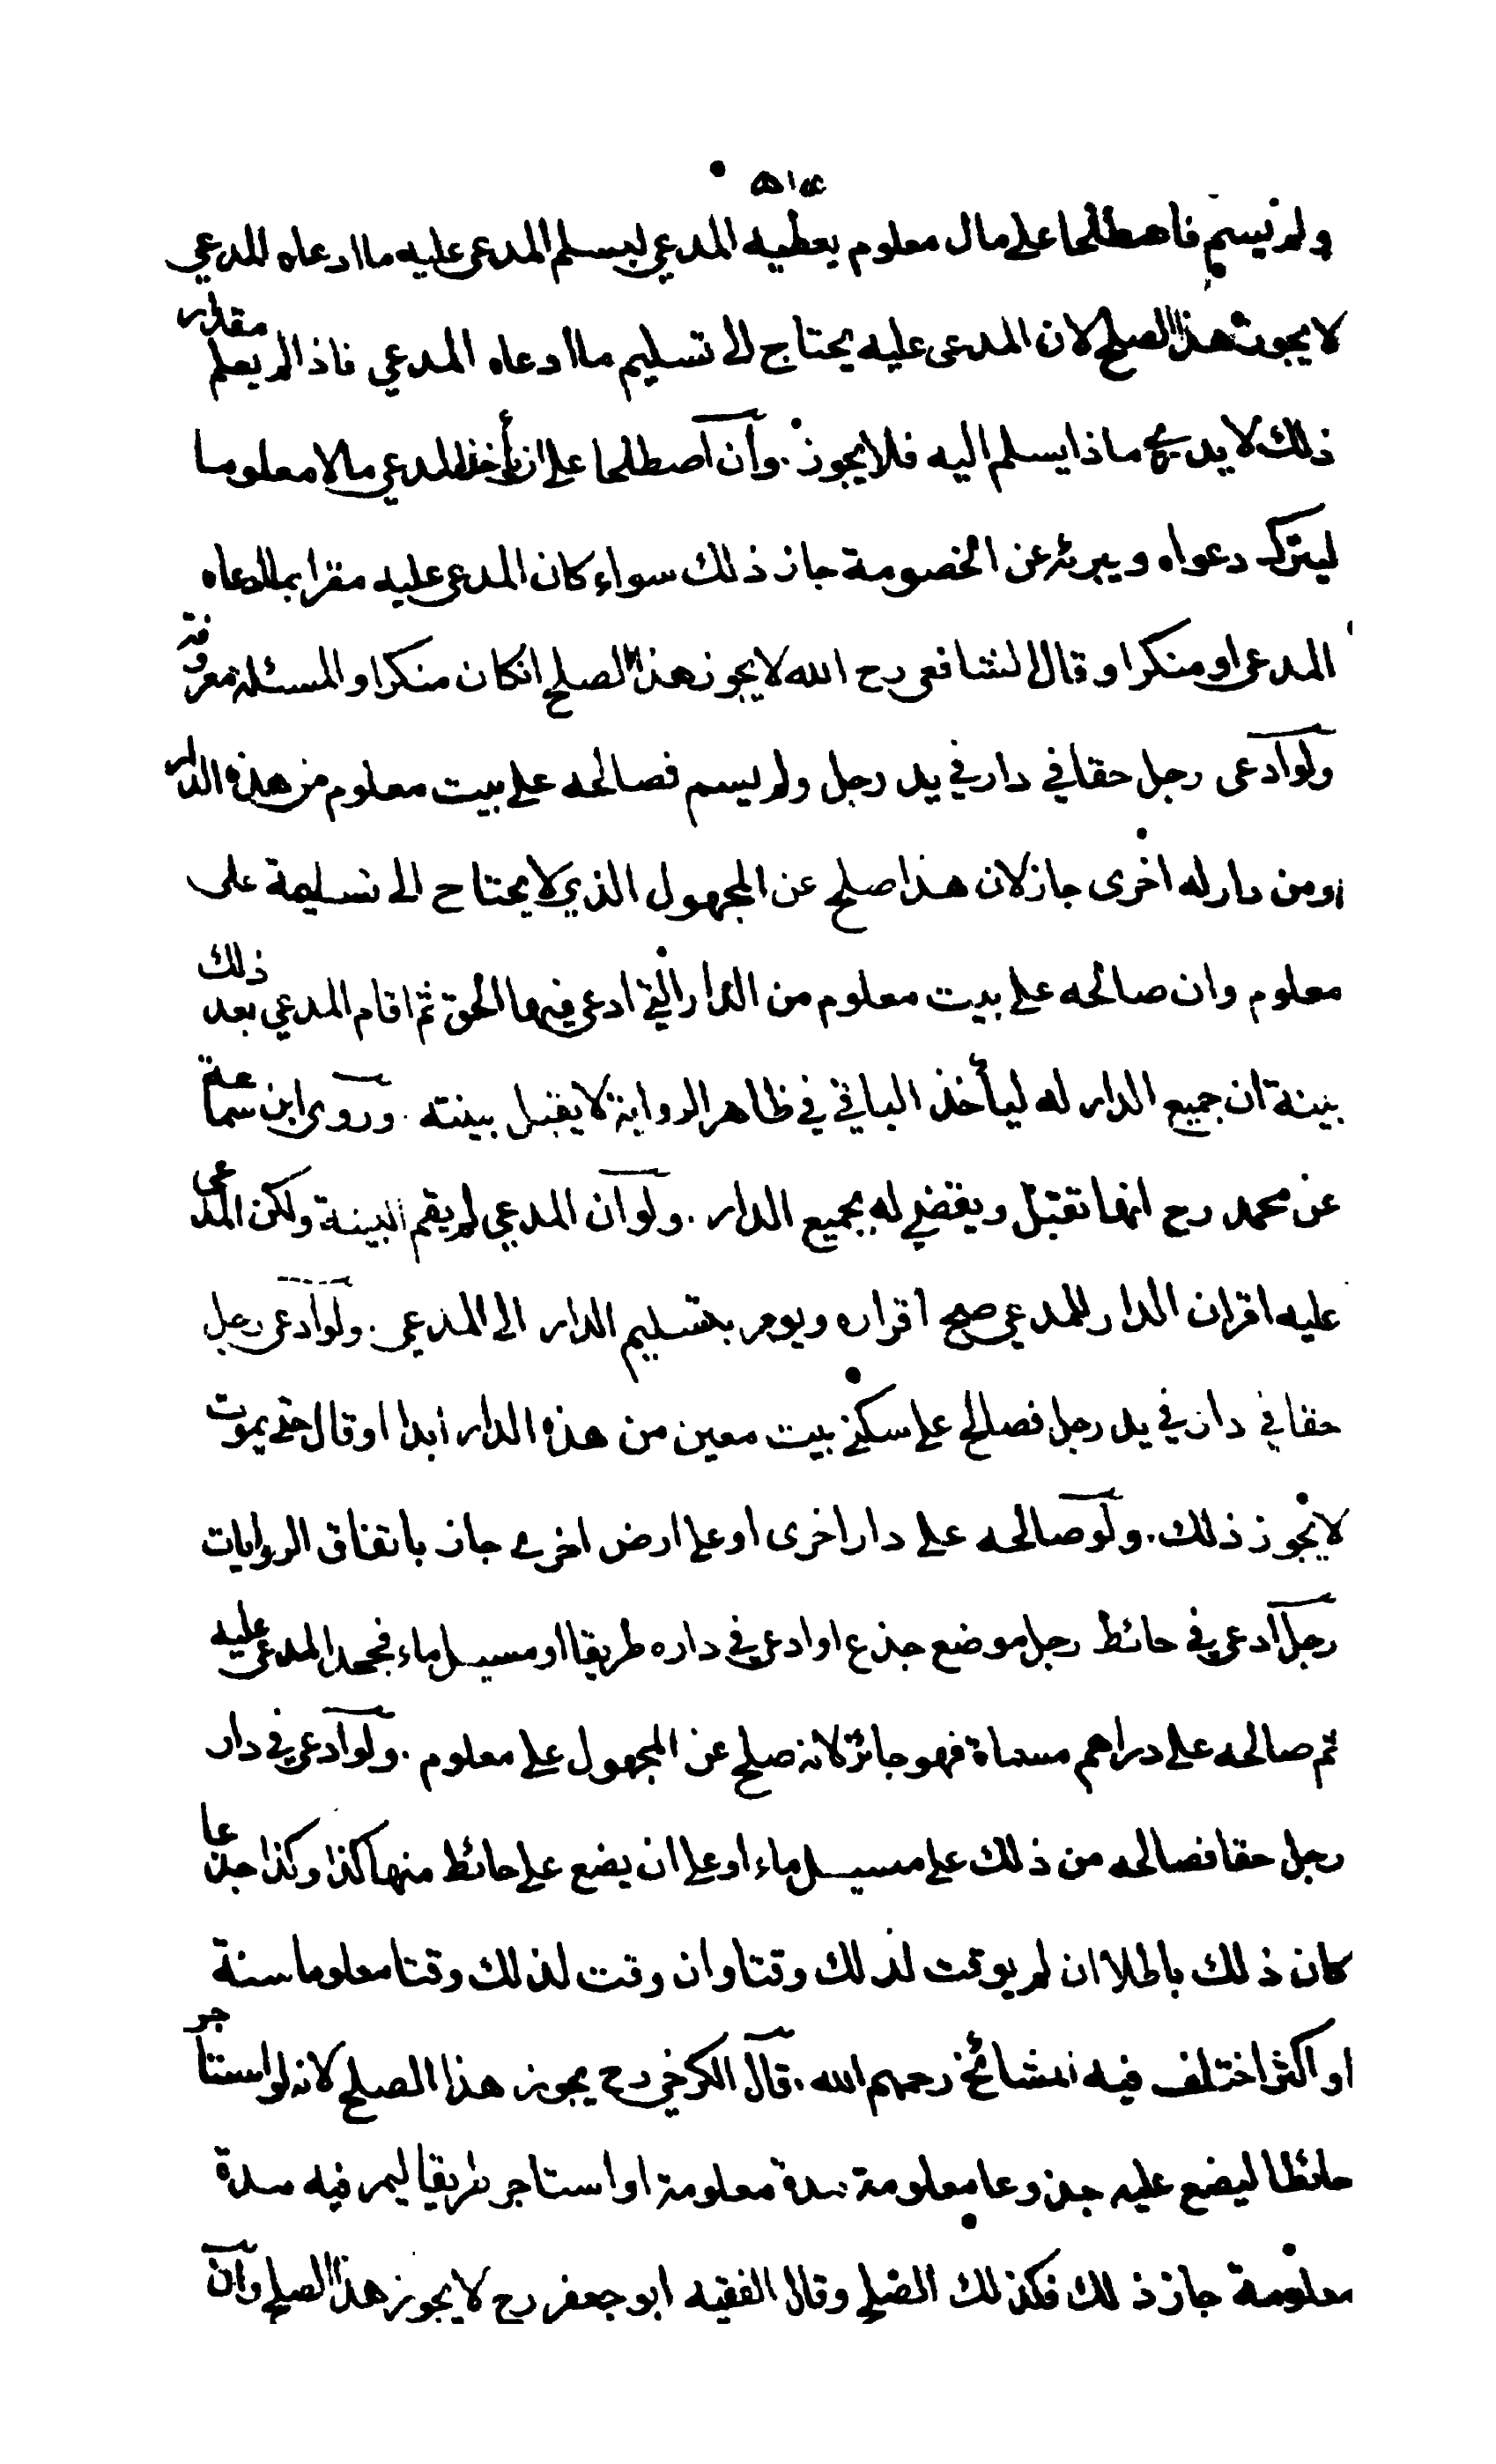 ٥١٤
ولم يسم فاصطلحا على مال معلوم يعطيه المدعي ليسلم المدعى عليه ما ادعاه المدعي
لا يجوز هذا الصلح لان المدعى عليه يحتاج الى تسليم ما ادعاه المدعي فاذا لم يعلم مقدار
ذلك لا يدري ماذا يسلم اليه فلا يجوز . وان اصطلحا على ان يأخذ المدعي مالا معلوما
ليترك دعواه ويبرئه عن الخصومة جاز ذلك سواء كان المدعى عليه مقرا بما ادعاه
المدعى او منكرا وقال الشافعي رح الله لا يجوز هذا الصلح انكان منكرا والمسئلة معروفة
ولو ادعى رجل حقا في دار في يد رجل ولم يسم فصالحه على بيت معلوم من هذه الدار
او من دار له اخرى جاز لان هذا صلح عن المجهول الذي لا يحتاج الى تسليمة على
معلوم وان صالحه على بيت معلوم من الدار التي ادعى فيها الحق ثم اقام المدعي بعد ذلك
بينة ان جميع الدار له ليأخذ الباقي في ظاهر الرواية لا يقبل بينته . وروى ابن سماعة
عن محمد رح انها تقبل ويقضي له بجميع الدار . ولو ان المدعي لم يقم البينة ولكن المدعى
عليه اقر ان الدار للمدعي صح اقراره ويومر بتسليم الدار الى المدعي . ولو ادعى رجل
حقا في دار في يد رجل فصالح على سكنى بيت معين من هذه الدار ابدا او قال حتى يموت
لا يجوز ذلك . ولو صالحه على دار اخرى او على ارض اخرى جاز باتفاق الروايات
رجل ادعى في حائط رجل موضع جذع او ادعى في داره طريقا او مسيل ماء فجحد المدعى عليه
ثم صالحه على دراهم مسماة فهو جائز لانه صلح عن المجهول على معلوم . ولو ادعى في دار
رجل حقا فصالحه من ذلك على مسيل ماء او على ان يضع على حائط منها كذا وكذا جذعا
كان ذلك باطلا ان لم يوقت لذلك وقتا وان وقت لذلك وقتا معلوما سنة
او اكثر اختلف فيه المشائخ رحمهم الله . قال الكرخي رح يجوز هذا الصلح لانه لو استاجر
حائطا ليضع عليه جذوعا معلومة مدة معلومة او استاجر طريقا ليمر فيه مدة
معلومة جاز ذلك فكذلك الصلح وقال الفقيه ابو جعفر رح لا يجوز هذا الصلح وان